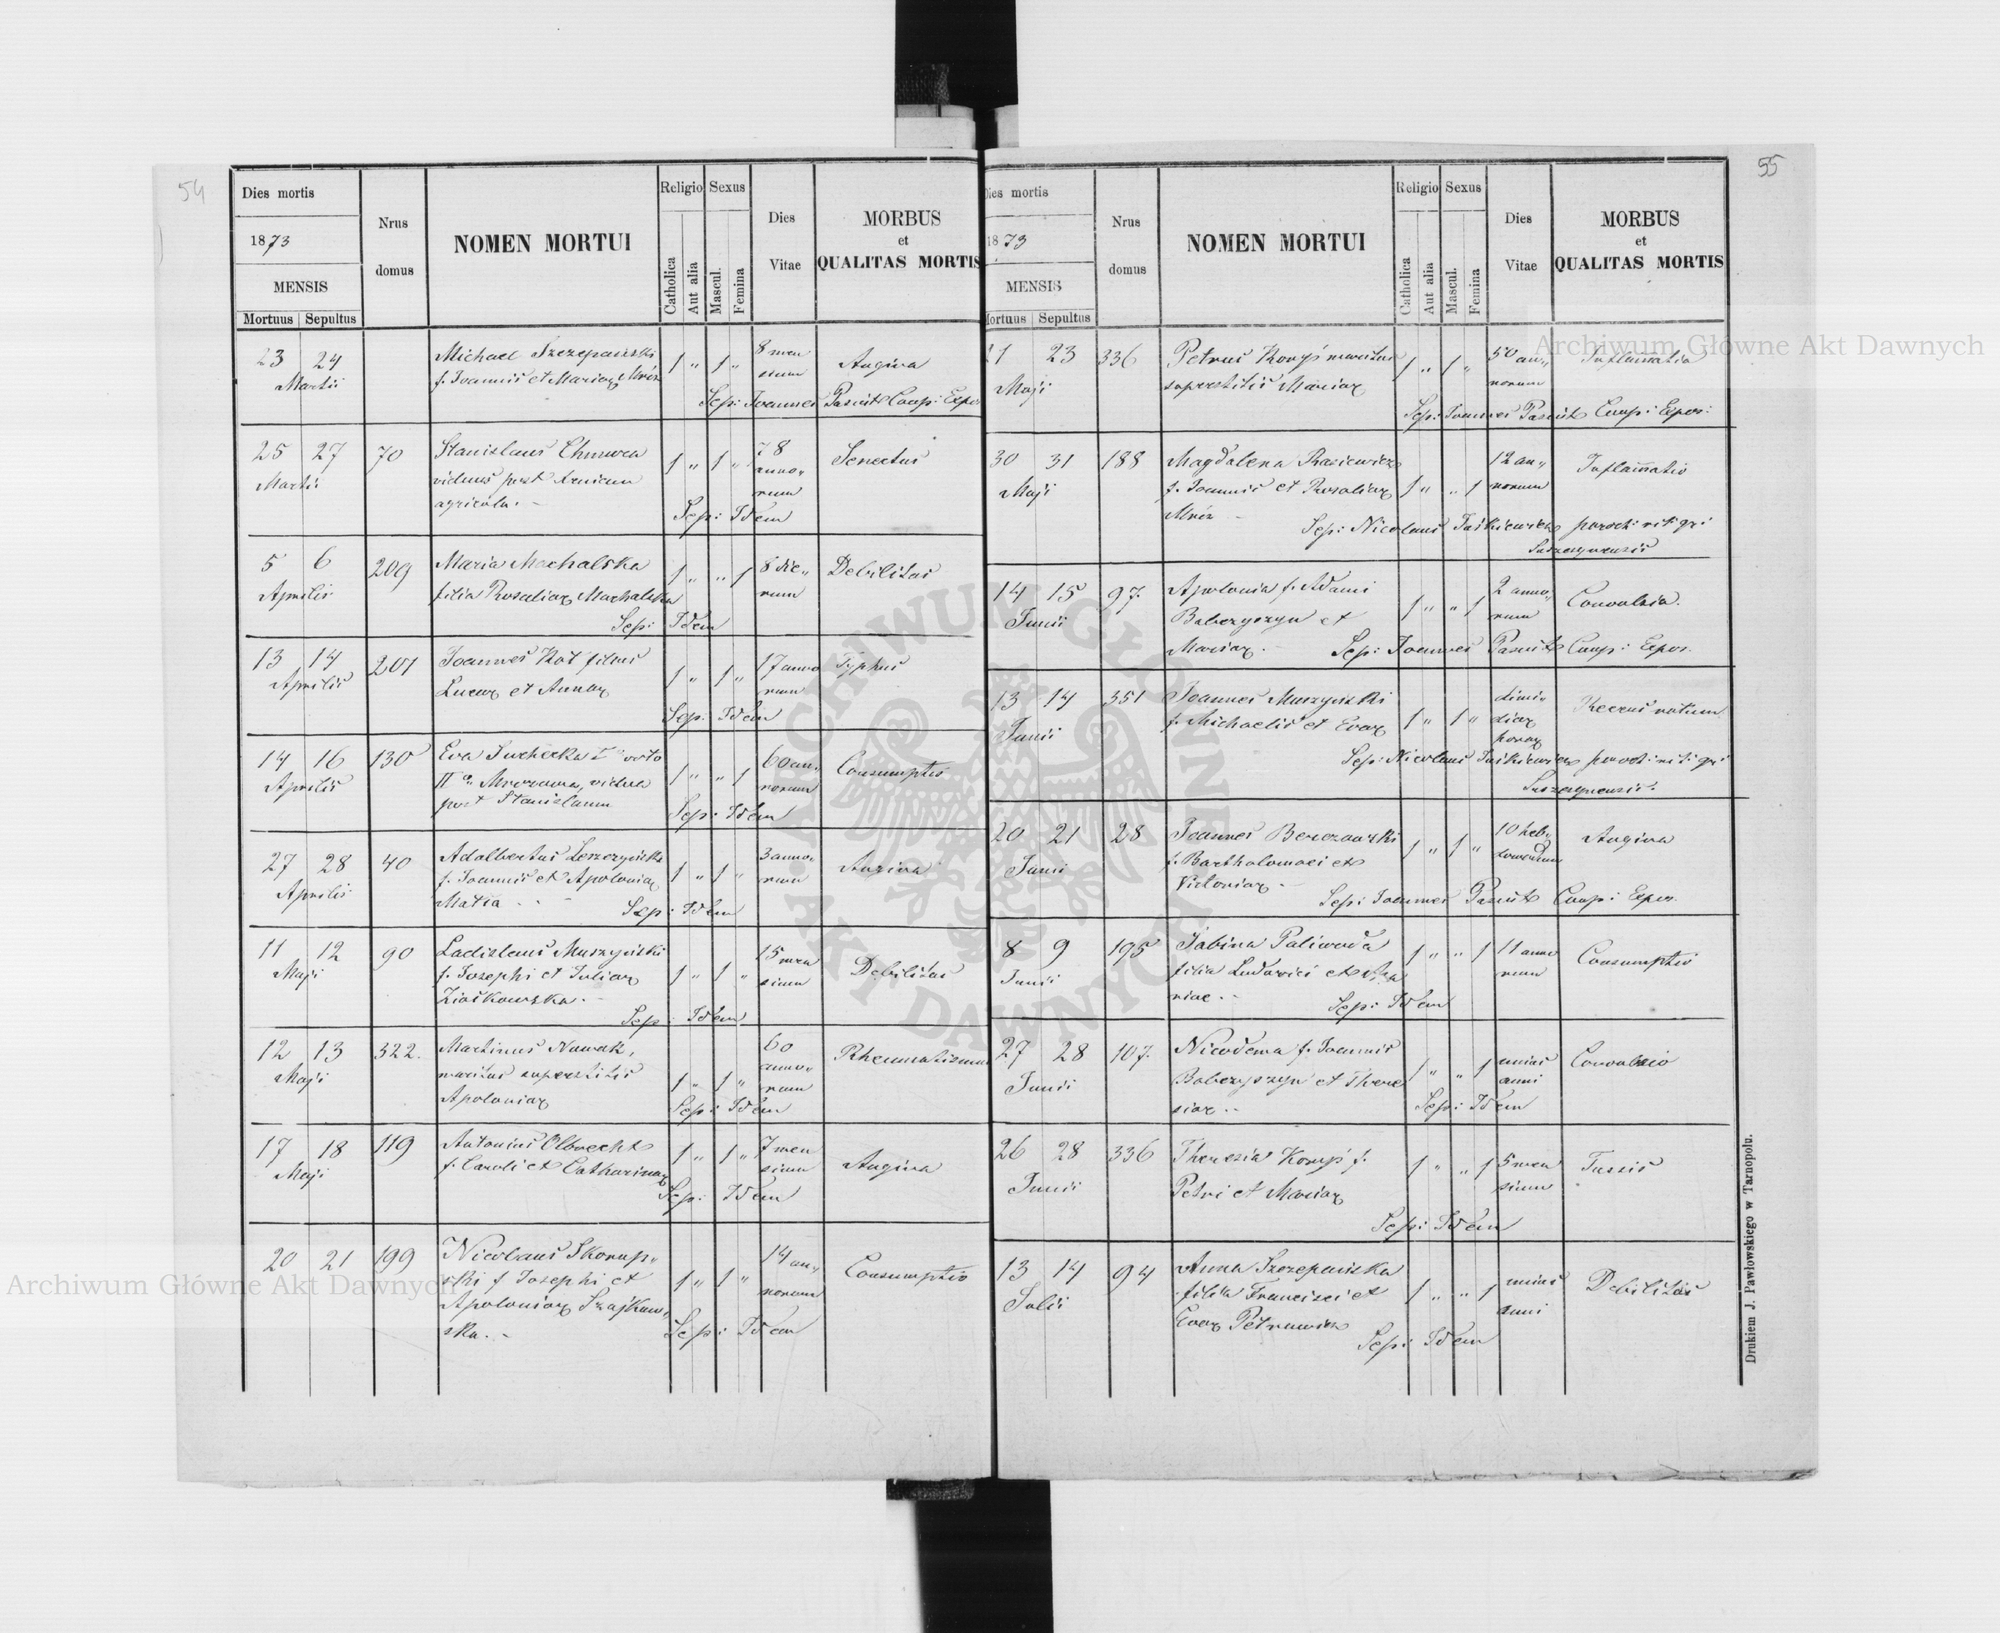 54
Dies mortis
1873
MENSIS
Mortuus Sepultus
Nrus domus
NOMEN MORTUI
Religio
Catholica
Aut alia
Sexus
Mascul.
Femina
Dies Vitae
MORBUS
et
QUALITAS MORTIS
23 24 Michael Szczepański 1 „ 1 „ 8 men
Martii f. Joannis et Mariae Mróz sium Angina
Sep: Joannes Pasiut Coop: Expos
25 27 70 Stanislaus 1 „ 1 „ 78 Senectus
Martii viduus post anno„
agricola. – rum
Sep: Idem
5 6 209 Maria Machalska 1 „ „ 1 8 die„ Debilitas
Aprilis filia Rosaliae Machalska rum
Sep: Idem
13 14 201 Joannes Kot filius 1 „ 1 „ 17 anno Typhus
Aprilis Lucae et Annae rum
Sep: Idem
14 16 130 Eva Suchecka I voto 1 „ „ 1 60 an„ Consumptio
Aprilis II vidua norum
post Stanislaum Sep: Idem
27 28 40 Adalbertus Leszczyński 1 „ 1 „ 3 anno„ Angina
Aprilis f. Joannis et Apoloniae rum
Matia Sep: Idem
11 12 90 Ladislaus Muszyński 1 „ 1 „ 15 men Debilitas
Maji f. Josephi et Juliae sium
Ziółkowska. – Sep: Idem
12 13 322. Martinus Nowak, 1 „ 1 „ 60 Rheumatismus
Maji maritus superstitis anno„
Apoloniae rum
Sep: Idem
17 18 119 Antonius Olbrecht 1 „ 1 „ 7 men Angina
Maji f. Caroli et Catharinae sium
Sep: Idem
20 21 199 Nicolaus Skorup„ 1 „ 1 „ 14 an„ Consumptio
ski f. Josephi et norum
Apoloniae Szajkow„
ska. – Sep: Idem
55
Dies mortis
1873
MENSIS
Mortuus Sepultus
Nrus domus
NOMEN MORTUI
Religio
Catholica
Aut alia
Sexus
Mascul.
Femina
Dies Vitae
MORBUS
et
QUALITAS MORTIS
21 23 336 Petrus Korpś maritus 1 „ 1 „ 50 an„ Inflamatio
Maji superstitis Mariae norum
Sep: Joannes Pasiut Coop: Expos:
30 31 188 Magdalena 1 „ „ 1 12 an„ Inflamatio
Maji f. Joannis et Rosaliae norum
Mróz – Sep: Nicolaus paroch: riti gr:
14 15 97. Apolonia f. Adami 1 „ „ 1 2 anno„ Convulsia.
Junii Boberyszyn et rum
Mariae. – Sep: Joannes Pasiut Coop: Expos.
13 14 351 Joannes Muszyński 1 „ 1 „ dimi„ Recens natum
Junii f. Michaelis et Evae diae
horae
Sep: Nicolaus paroch: riti gr:
20 21 28 Joannes Berezowski 1 „ 1 „ 10 heb„ Angina
Junii f. Bartholomaei et domadum
Victoriae. – Sep: Joannes Pasiut Coop: Expos.
8 9 195 Sabina Paliwoda 1 „ „ 1 11 anno Consumptio
Junii filia Ludovici et Ma rum
riae. – Sep: Idem
27 28 107. Nicodema f. Joannis 1 „ „ 1 unius Convulsio
Junii Boberyszyn et There anni
siae. – Sep: Idem
26 28 336 Theresia Korpś f. 1 „ „ 1 5 men Tussis
Junii Petri et Mariae sium
Sep: Idem
13 14 94 Anna Szczepańska 1 „ „ 1 unius Debilitas
Julii filia Francisci et anni
Evae
Sep: Idem
Drukiem J. Pawłowskiego w Tarnopolu.
Archiwum Główne Akt Dawnych
Archiwum Główne Akt Dawnych
ARCHIWUM GŁÓWNE
AKT DAWNYCH